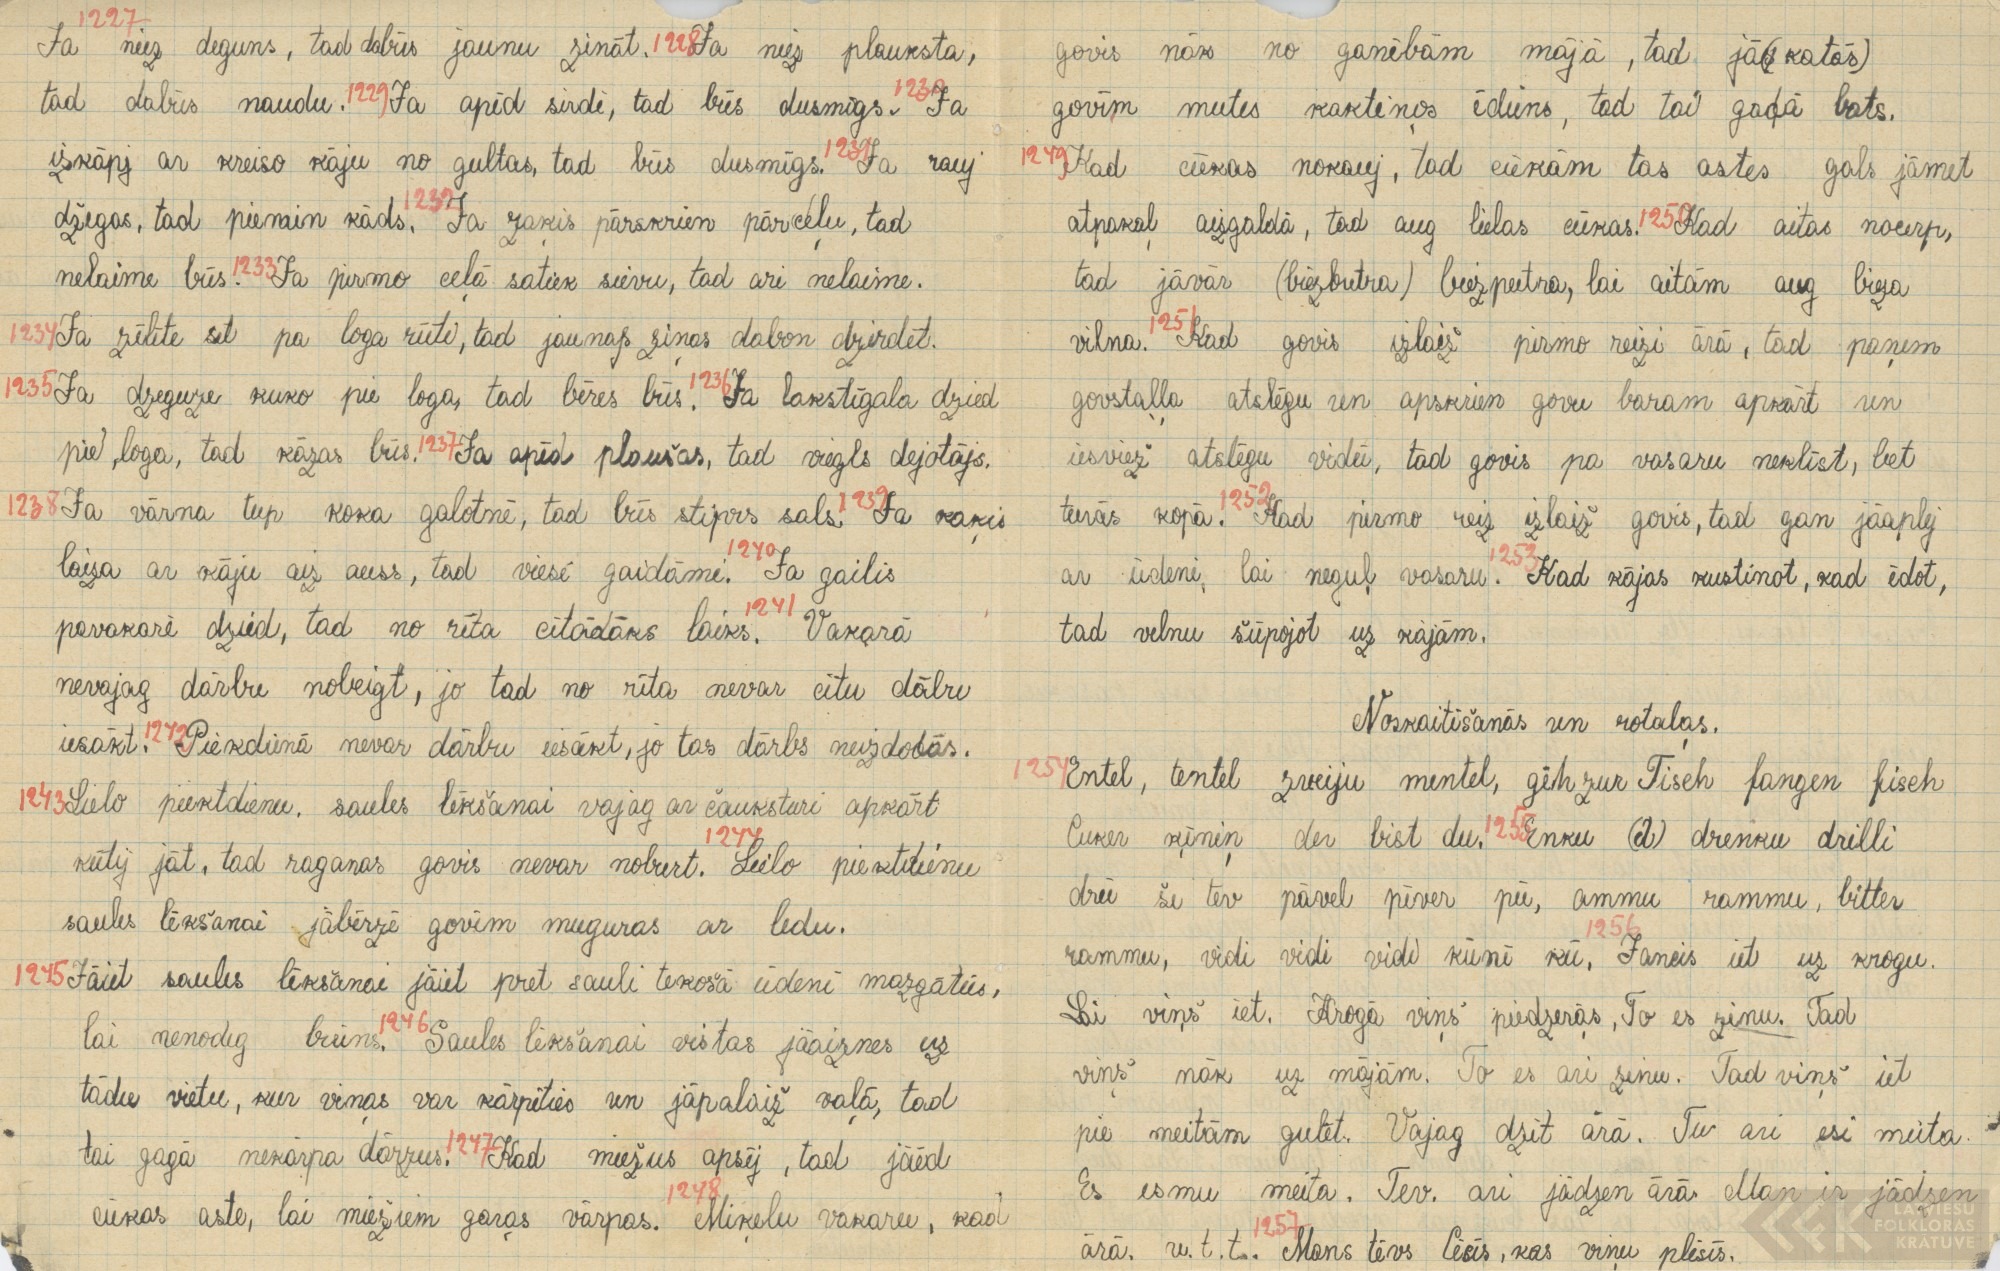 1227
Ja niez deguns, tad dabūs jaunu zināt. 1228 Ja niez plauksta,
tad dabūs naudu. 1229 Ja apēd sirdi, tad būs dusmīgs. 1230 Ja
izkāpj ar kreiso kāju no gultas, tad būs dusmīgs. 1231 Ja rauj
džegas, tad piemin kāds. 1232 Ja zaķis pārskrien pār ceļu, tad
nelaime būs. 1233 Ja pirmo ceļā satiek sievu, tad ari nelaime.
1234 Ja zīlīte sit pa loga rūti, tad jaunas ziņas dabon dzirdēt.
1235 Ja dzeguze kuko pie loga, tad bēres būs. 1236 Ja lakstīgala dzied
pie loga, tad kāzas būs. 1237 Ja apēd plaušas, tad viegls dejotājs.
1238 Ja vārna tup koka galotnē, tad būs stiprs sals. 1239 Ja kaķis
laiza ar kāju aiz auss, tad viesi gaidāmi. 1240 Ja gailis
pavakarē dzied, tad no rīta citādāks laiks. 1241 Vakarā
nevajag dārbu nobeigt, jo tad no rīta nevar citu dābu
iesākt. 1242 Piekdienā nevar dārbu iesākt, jo tas dārbs neizdodās.
1243 Lielo piektdienu, saules lēkšanai vajag ar čauksturi apkārt
kūtij jāt, tad raganas govis nevar noburt. 1244 Lielo piektdienu
saules lēkšanai jābērzē govīm muguras ar ledu.
1245 Jāiet saules lēkšanai jāiet pret sauli tekošā ūdenī mazgāties,
lai nenodeg brūns. 1246 Saules lēkšanai vistas jāaiznes uz
tādu vietu, kur viņas var kārpīties un jāpalaiž vaļā, tad
tai gagā nekārpa dārzus. 1247 Kad miežus apsēj, tad jāēd
cūkas aste, lai miežiem garas vārpas. 1248 Miķeļu vakaru, kad
govis nāk no ganībām mājā, tad jā(skatās)
govīm mutes kaktiņos ēdiens, tad tai gadā bats.
1249 Kad cūkas nokauj, tad cūkām tas astes gals jāmet
atpakaļ aizgaldā, tad aug lielas cūkas. 1250 Kad aitas nocērp,
tad jāvār (biezbutra) biezputra, lai aitām aug bieza
vilna. 1251 Kad govis izlaiž pirmo reizi ārā, tad paņem
govstaļļa atslēgu un apskrien govu baram apkārt un
iesviež atslēgu vidū, tad govis pa vasaru neklīst, bet
turās kopā. 1252 Kad pirmo reiz izlaiž govis, tad gan jāaplej
ar ūdeni, lai neguļ vasaru. 1253 Kad kājas kustinot, kad ēdot,
tad velnu šūpojot uz kājām.
Noskaitīšanās un rotaļas.
1254 Entel, tentel zveiju mentel, gēh zur Tisch fangen fisch
Cuker ķīniņ der bist du. 1255 Enku (d) drenku drilli
drū še tēv pāvel pīver pū, ammu rammu, bitter
rammu, vidi vidi vidi kūnī kū. 1256 Jancis iet uz krogu.
Lai viņš iet. Krogā viņš piedzerās, To es zinu. Tad
viņš nāk uz mājām. To es ari zinu. Tad viņš iet
pie meitām gulēt. Vajag dzīt ārā. Tu ari esi meita.
Es esmu meita. Tev. ari jādzen ārā. Man ir jādzen
ārā. u.t.t.. 1257 Mans tēvs Cēsīs, kas viņu plēsīs.
LATVIEŠU
FOLKLORAS
KRĀTUVE